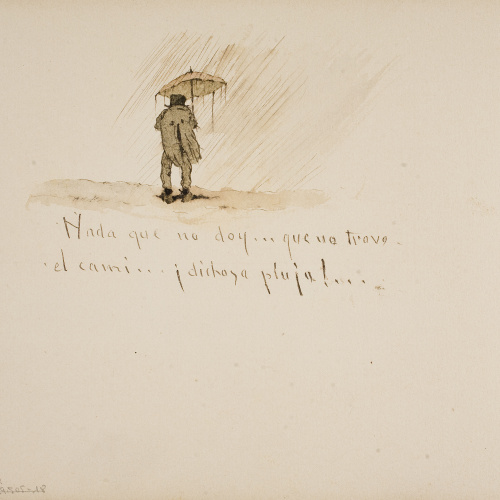 Nada que no doy... que no trovo
el camí... ¡dichoza pluja!...